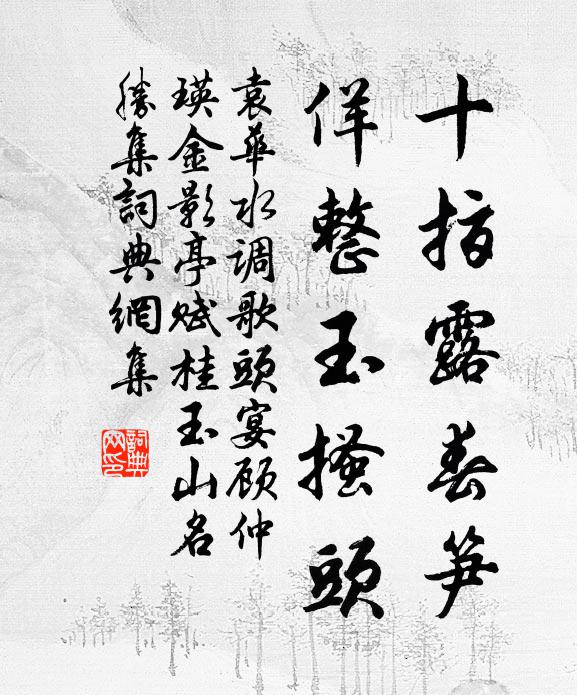 十指露春笋
佯整玉搔頭
袁華水调歌頭宴顾仲
瑛金影亭赋桂玉山名
勝集詞典網集
詞典網印